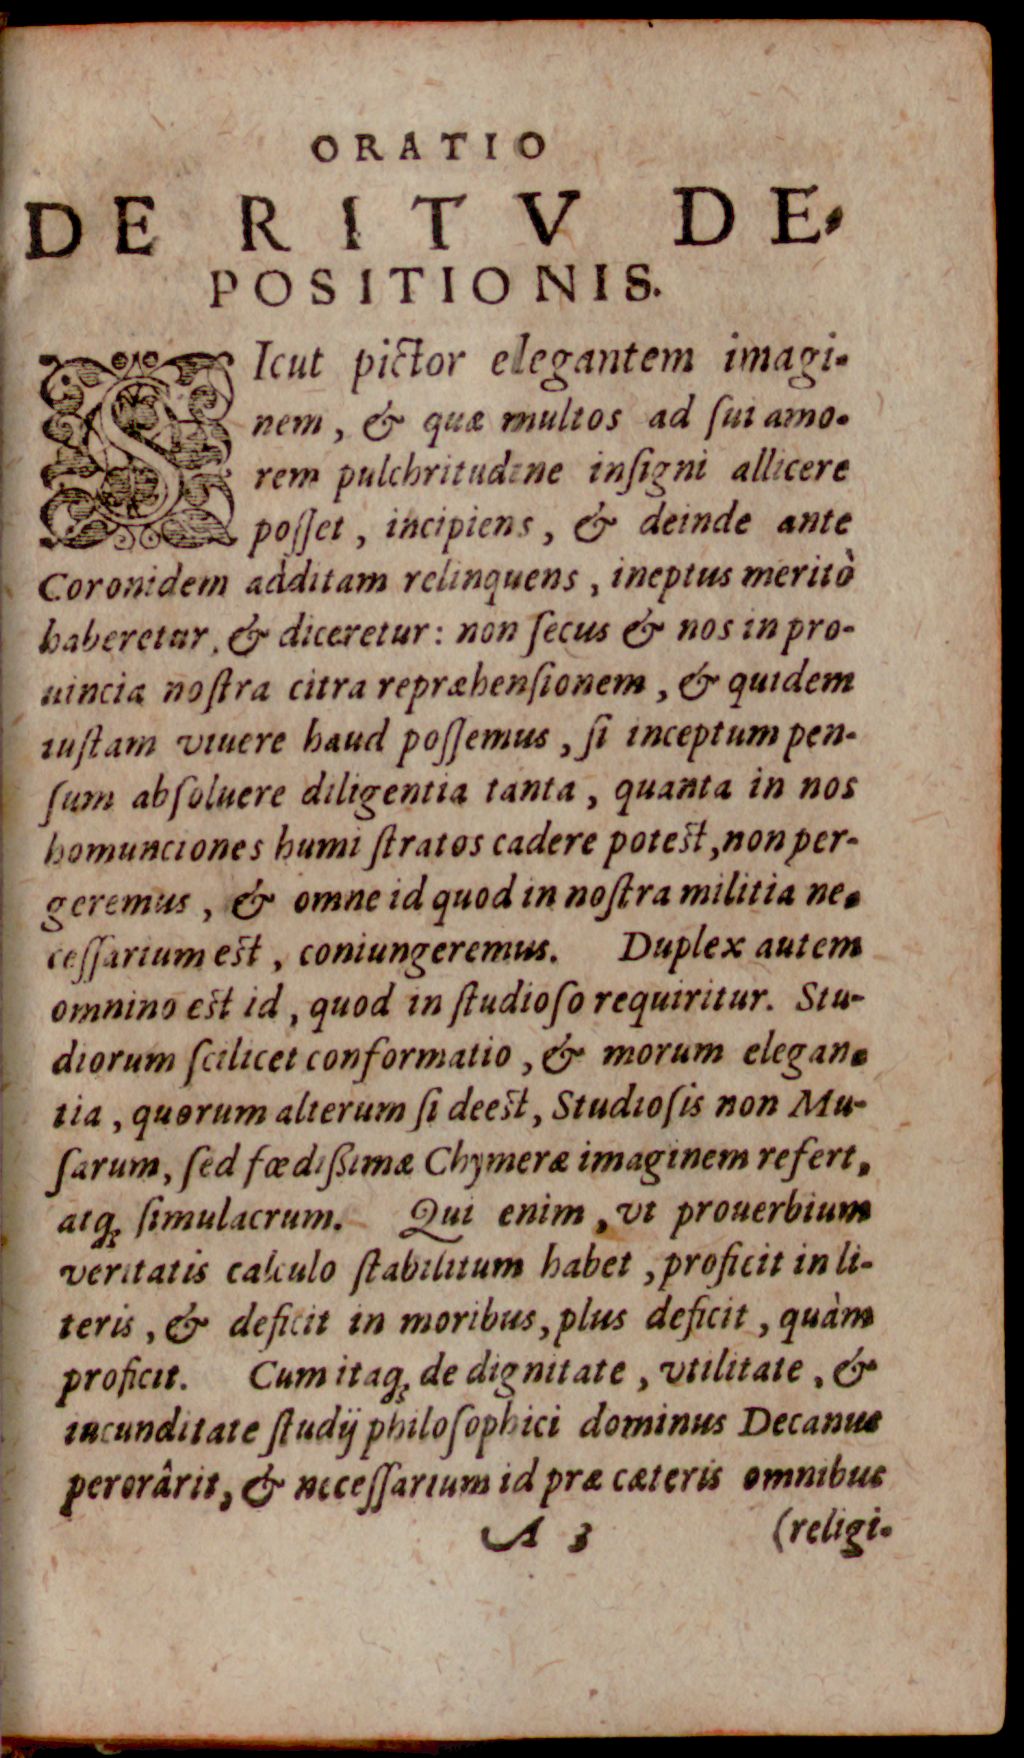 ORATIO
DE RITV DE-
POSITIONIS.
SIcut pictor elegantem imagi-
nem, & quæ multos ad ſui amo-
rem pulchritudine inſigni allicere
poſſet, incipiens, & deinde ante
Coronidem additam relinquens, ineptus meritò
haberetur, & diceretur: non ſecus & nos in pro-
uincia noſtra citra repræhenſionem, & quidem
iuſtam viuere haud poſſemus, ſi inceptum pen-
ſum abſoluere diligentia tanta, quanta in nos
homunciones humi ſtratos cadere poteſt, non per-
geremus, & omne id quod in noſtra militia ne-
ceſſarium eſt, coniungeremus. Duplex autem
omnino eſt id, quod in ſtudioſo requiritur. Stu-
diorum ſcilicet conformatio, & morum elegan-
tia, quorum alterum ſi deeſt, Studioſis non Mu-
ſarum, ſed fœdiſsimæ Chymeræ imaginem refert,
atq; ſimulacrum. Qui enim, vt prouerbium
veritatis calculo ſtabilitum habet, proficit in li-
teris, & deficit in moribus, plus deficit, quàm
proficit. Cum itaq; de dignitate, vtilitate, &
iucunditate ſtudij philoſophici dominus Decanus
perorârit, & neceſſarium id præ cæteris omnibus
A 3 (religi-